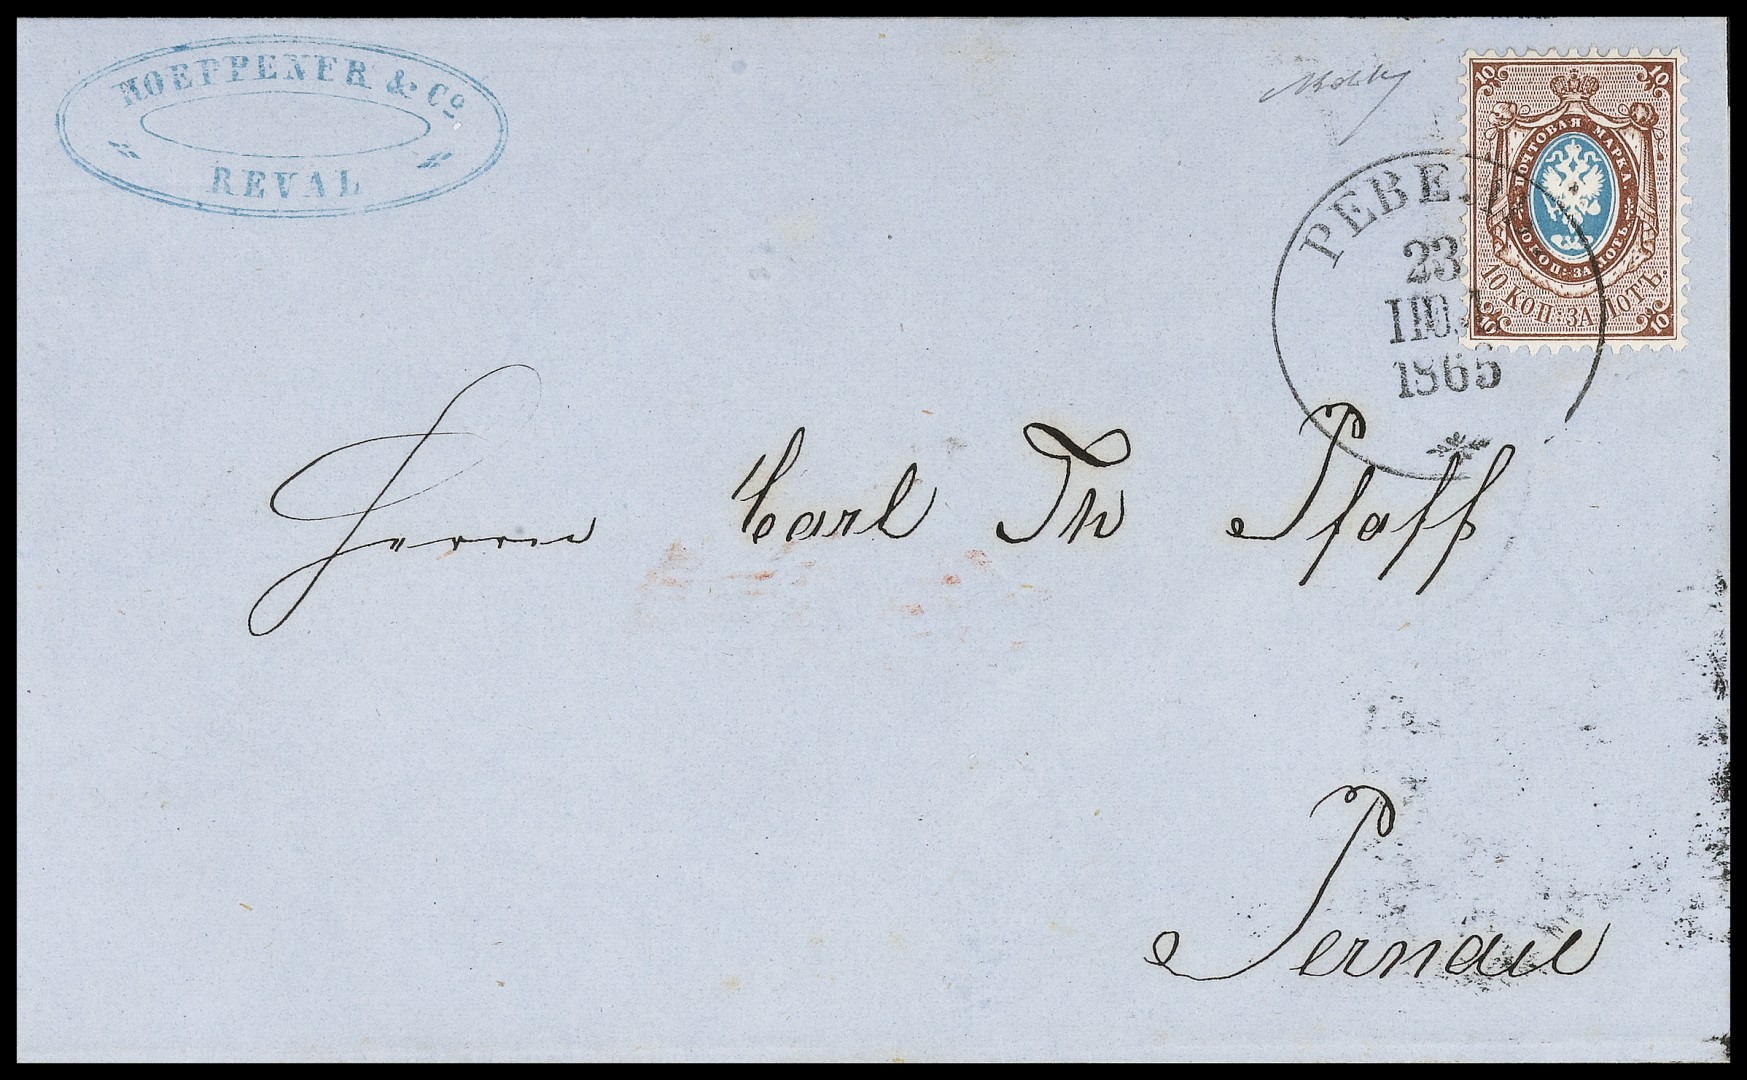 HOEPPENER & Cº
REVAL
10 10
ПОЧТОВАЯ МАРКА
10 КОП: ЗА ЛОТЪ.
10 КОП: ЗА ЛОТЪ.
10 10
РЕВЕЛЬ
23
ІЮЛ
1865
Herrn Carl Th Pfaff
Pernau